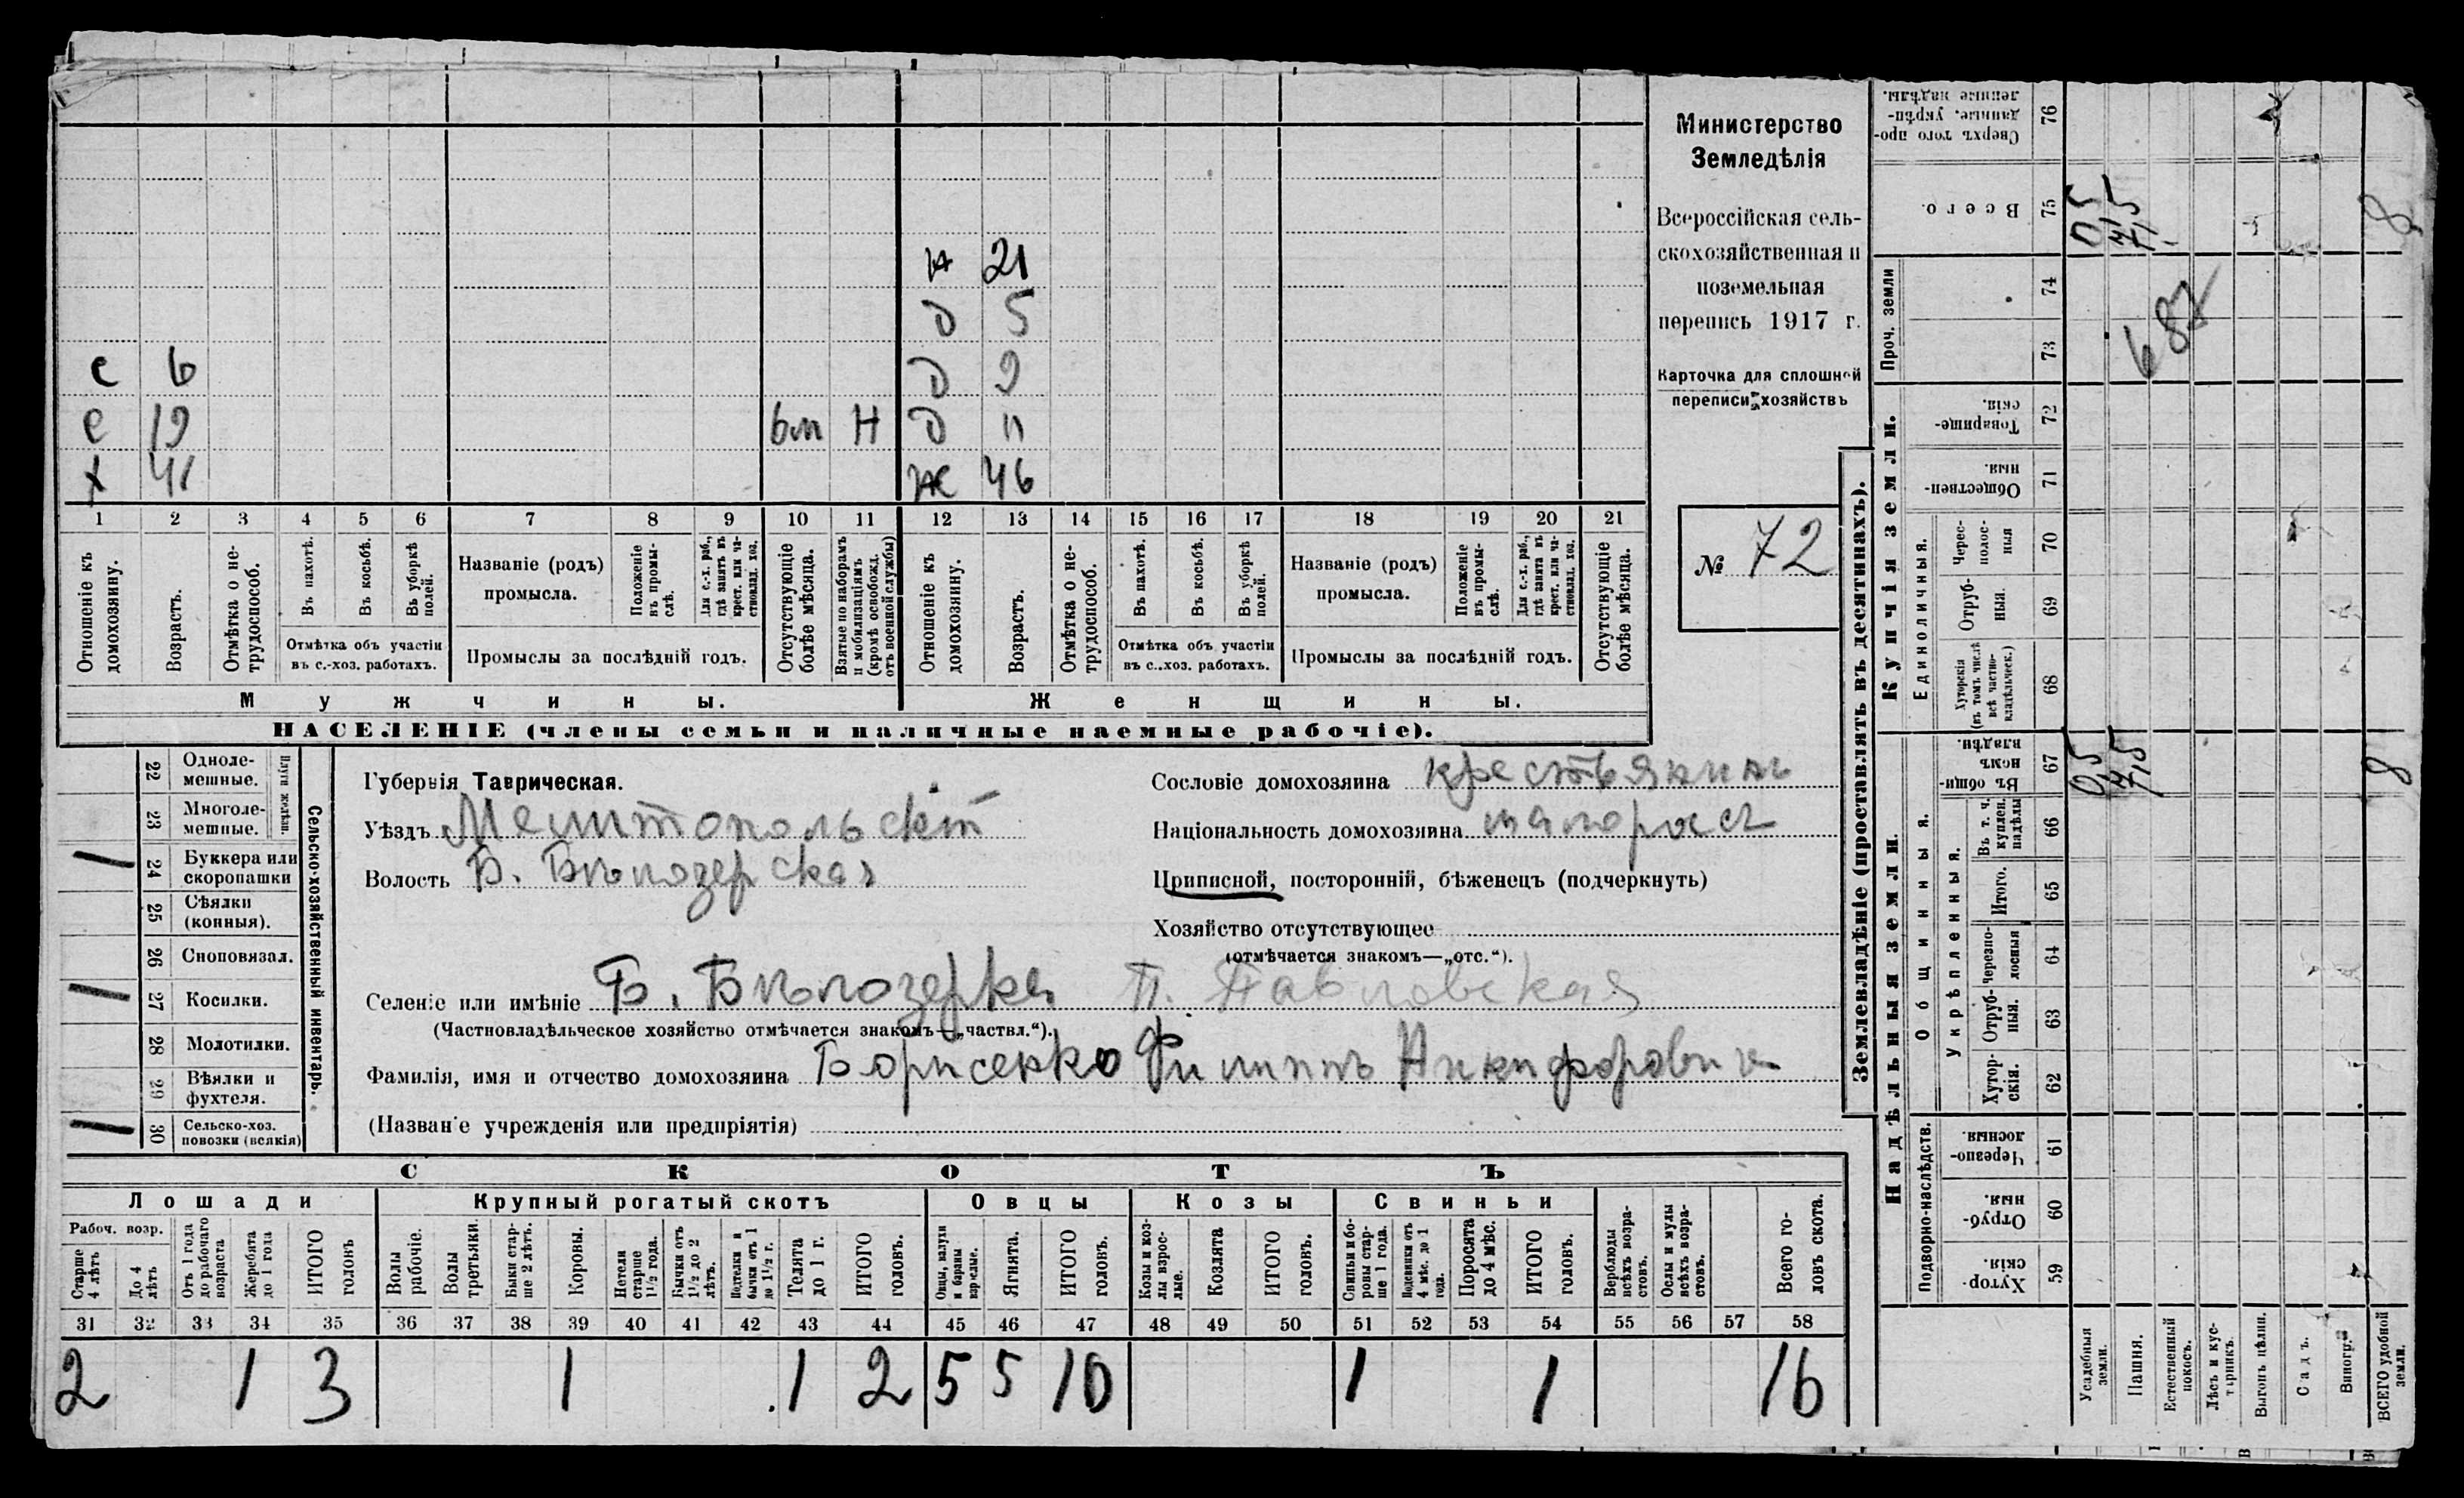 Министерство
Земледѣлія
Всероссійская сель-
скохозяйственная и
поземельная
перепись 1917 г.
Карточка для сплошной
переписи хозяйствъ
№ 72
н 21
д 5
с 6 д 9
с 19 6м Н д 11
х 41 ж 46
1 2 3 4 5 6 7 8 9 10 11 12 13 14 15 16 17 18 19 20 21
Отношеніе къ домохозяину.
Возрастъ.
Отмѣтка о не-трудоспособ.
Въ пахотѣ.
Въ косьбѣ.
Въ уборкѣ полей.
Отмѣтка объ участіи въ с.-хоз. работахъ.
Названіе (родъ) промысла.
Положеніе въ промы-слѣ.
Для с.-х. раб., гдѣ занятъ въ крест. или ча-стновлад. хоз.
Промыслы за послѣдній годъ.
Отсутствующіе болѣе мѣсяца.
Взятые по наборамъ и мобилизаціямъ (кромѣ освобожд. отъ военной службы)
Отношеніе къ домохозяину.
Возрастъ.
Отмѣтка о не-трудоспособ.
Въ пахотѣ.
Въ косьбѣ.
Въ уборкѣ полей.
Отмѣтка объ участіи въ с.-хоз. работахъ.
Названіе (родъ) промысла.
Положеніе въ промы-слѣ.
Для с.-х. раб., гдѣ занята въ крест. или ча-стновлад. хоз.
Промыслы за послѣдній годъ.
Отсутствующіе болѣе мѣсяца.
Мужчины. Женщины.
НАСЕЛЕНІЕ (члены семьи и наличные наемные рабочіе).
22 Одноле-мешные.
23 Многоле-мешные.
Плуги желѣзн.
24 Буккера или скоропашки
25 Сѣялки (конныя).
26 Сноповязал.
27 Косилки.
28 Молотилки.
29 Вѣялки и фухтеля.
30 Сельско-хоз. повозки (всякія)
Сельско-хозяйственный инвентарь.
Губернія Таврическая.
Уѣздъ Мелитопольскій
Волость Б. Бѣлозерская
Сословіе домохозяина крестьянинъ
Національность домохозяина малоросъ
Приписной, посторонній, бѣженецъ (подчеркнуть)
Хозяйство отсутствующее
(отмѣчается знакомъ—„отс.“).
Селеніе или имѣніе Б. Бѣлозерка П. Павловская
(Частновладѣльческое хозяйство отмѣчается знакомъ—„частвл.“).
Фамилія, имя и отчество домохозяина Борисенко Филиппъ Никифорович
(Названіе учрежденія или предпріятія)
СКОТЪ
Лошади Крупный рогатый скотъ Овцы Козы Свиньи
Рабоч. возр.
Старше 4 лѣтъ
До 4 лѣтъ
Отъ 1 года до рабочаго возраста
Жеребята до 1 года
ИТОГО головъ
Волы рабочіе.
Волы третьяки.
Быки стар-ше 2 лѣтъ.
Коровы.
Нетели старше 1½ года.
Бычки отъ 1½ до 2 лѣтъ.
Подтелки и бычки отъ 1 до 1½ г.
Телята до 1 г.
ИТОГО головъ.
Овцы, валухи и бараны взрослые.
Ягнята.
ИТОГО головъ.
Козы и коз-лы взрос-лые.
Козлята
ИТОГО головъ.
Свиньи и бо-ровы стар-ше 1 года.
Подсвинки отъ 4 мѣс. до 1 года.
Поросята до 4 мѣс.
ИТОГО головъ.
Верблюды всѣхъ возра-стовъ.
Ослы и мулы всѣхъ возра-стовъ.
Всего го-ловъ скота.
31 32 33 34 35 36 37 38 39 40 41 42 43 44 45 46 47 48 49 50 51 52 53 54 55 56 57 58
2 1 3 1 1 2 5 5 10 1 1 16
Землевладѣніе (проставлять въ десятинахъ).
Надѣльныя земли. Купчія земли. Проч. земли
Подворно-наслѣдств. Общинныя. Укрѣпленныя. Единоличныя.
Хутор-скія. 59
Отруб-ныя. 60
Черезпо-лосныя. 61
Хутор-скія. 62
Отруб-ныя. 63
Черезпо-лосныя 64
Итого. 65
Въ т. ч. куплен. надѣлы 66
Въ общи-номъ владѣн. 67
Хуторскія (въ томъ числѣ всѣ частно-владѣльческ.) 68
Отруб-ныя. 69
Черес-полос-ныя 70
Обществен-ныя. 71
Товарище-скія. 72
73
74
Всего. 75
Сверхъ того про-данные, укрѣп-ленные надѣлы. 76
Усадебныя земли. 0,5 0,5
Пашня. 7,5 7,5
687
Естественный покосъ.
Лѣсъ и кус-тарникъ.
Выгонъ цѣлин.
Садъ.
Виногр.
ВСЕГО удобной земли. 8 8